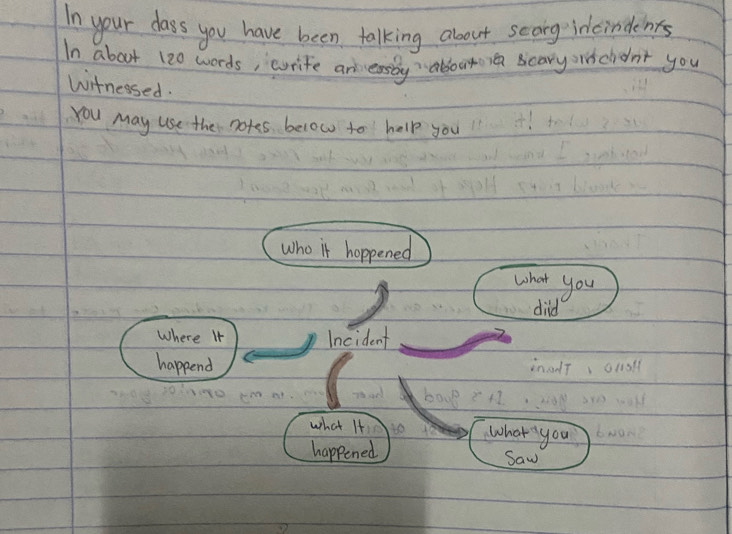 In your dass you have been talking about scary inicindents
In about 120 words, write an essay about a scary incident you
Witnessed.
You may use the notes below to help you
Who it hoppened
What you
diid
Where It
happend
Incident
what It
happened
What you
Saw